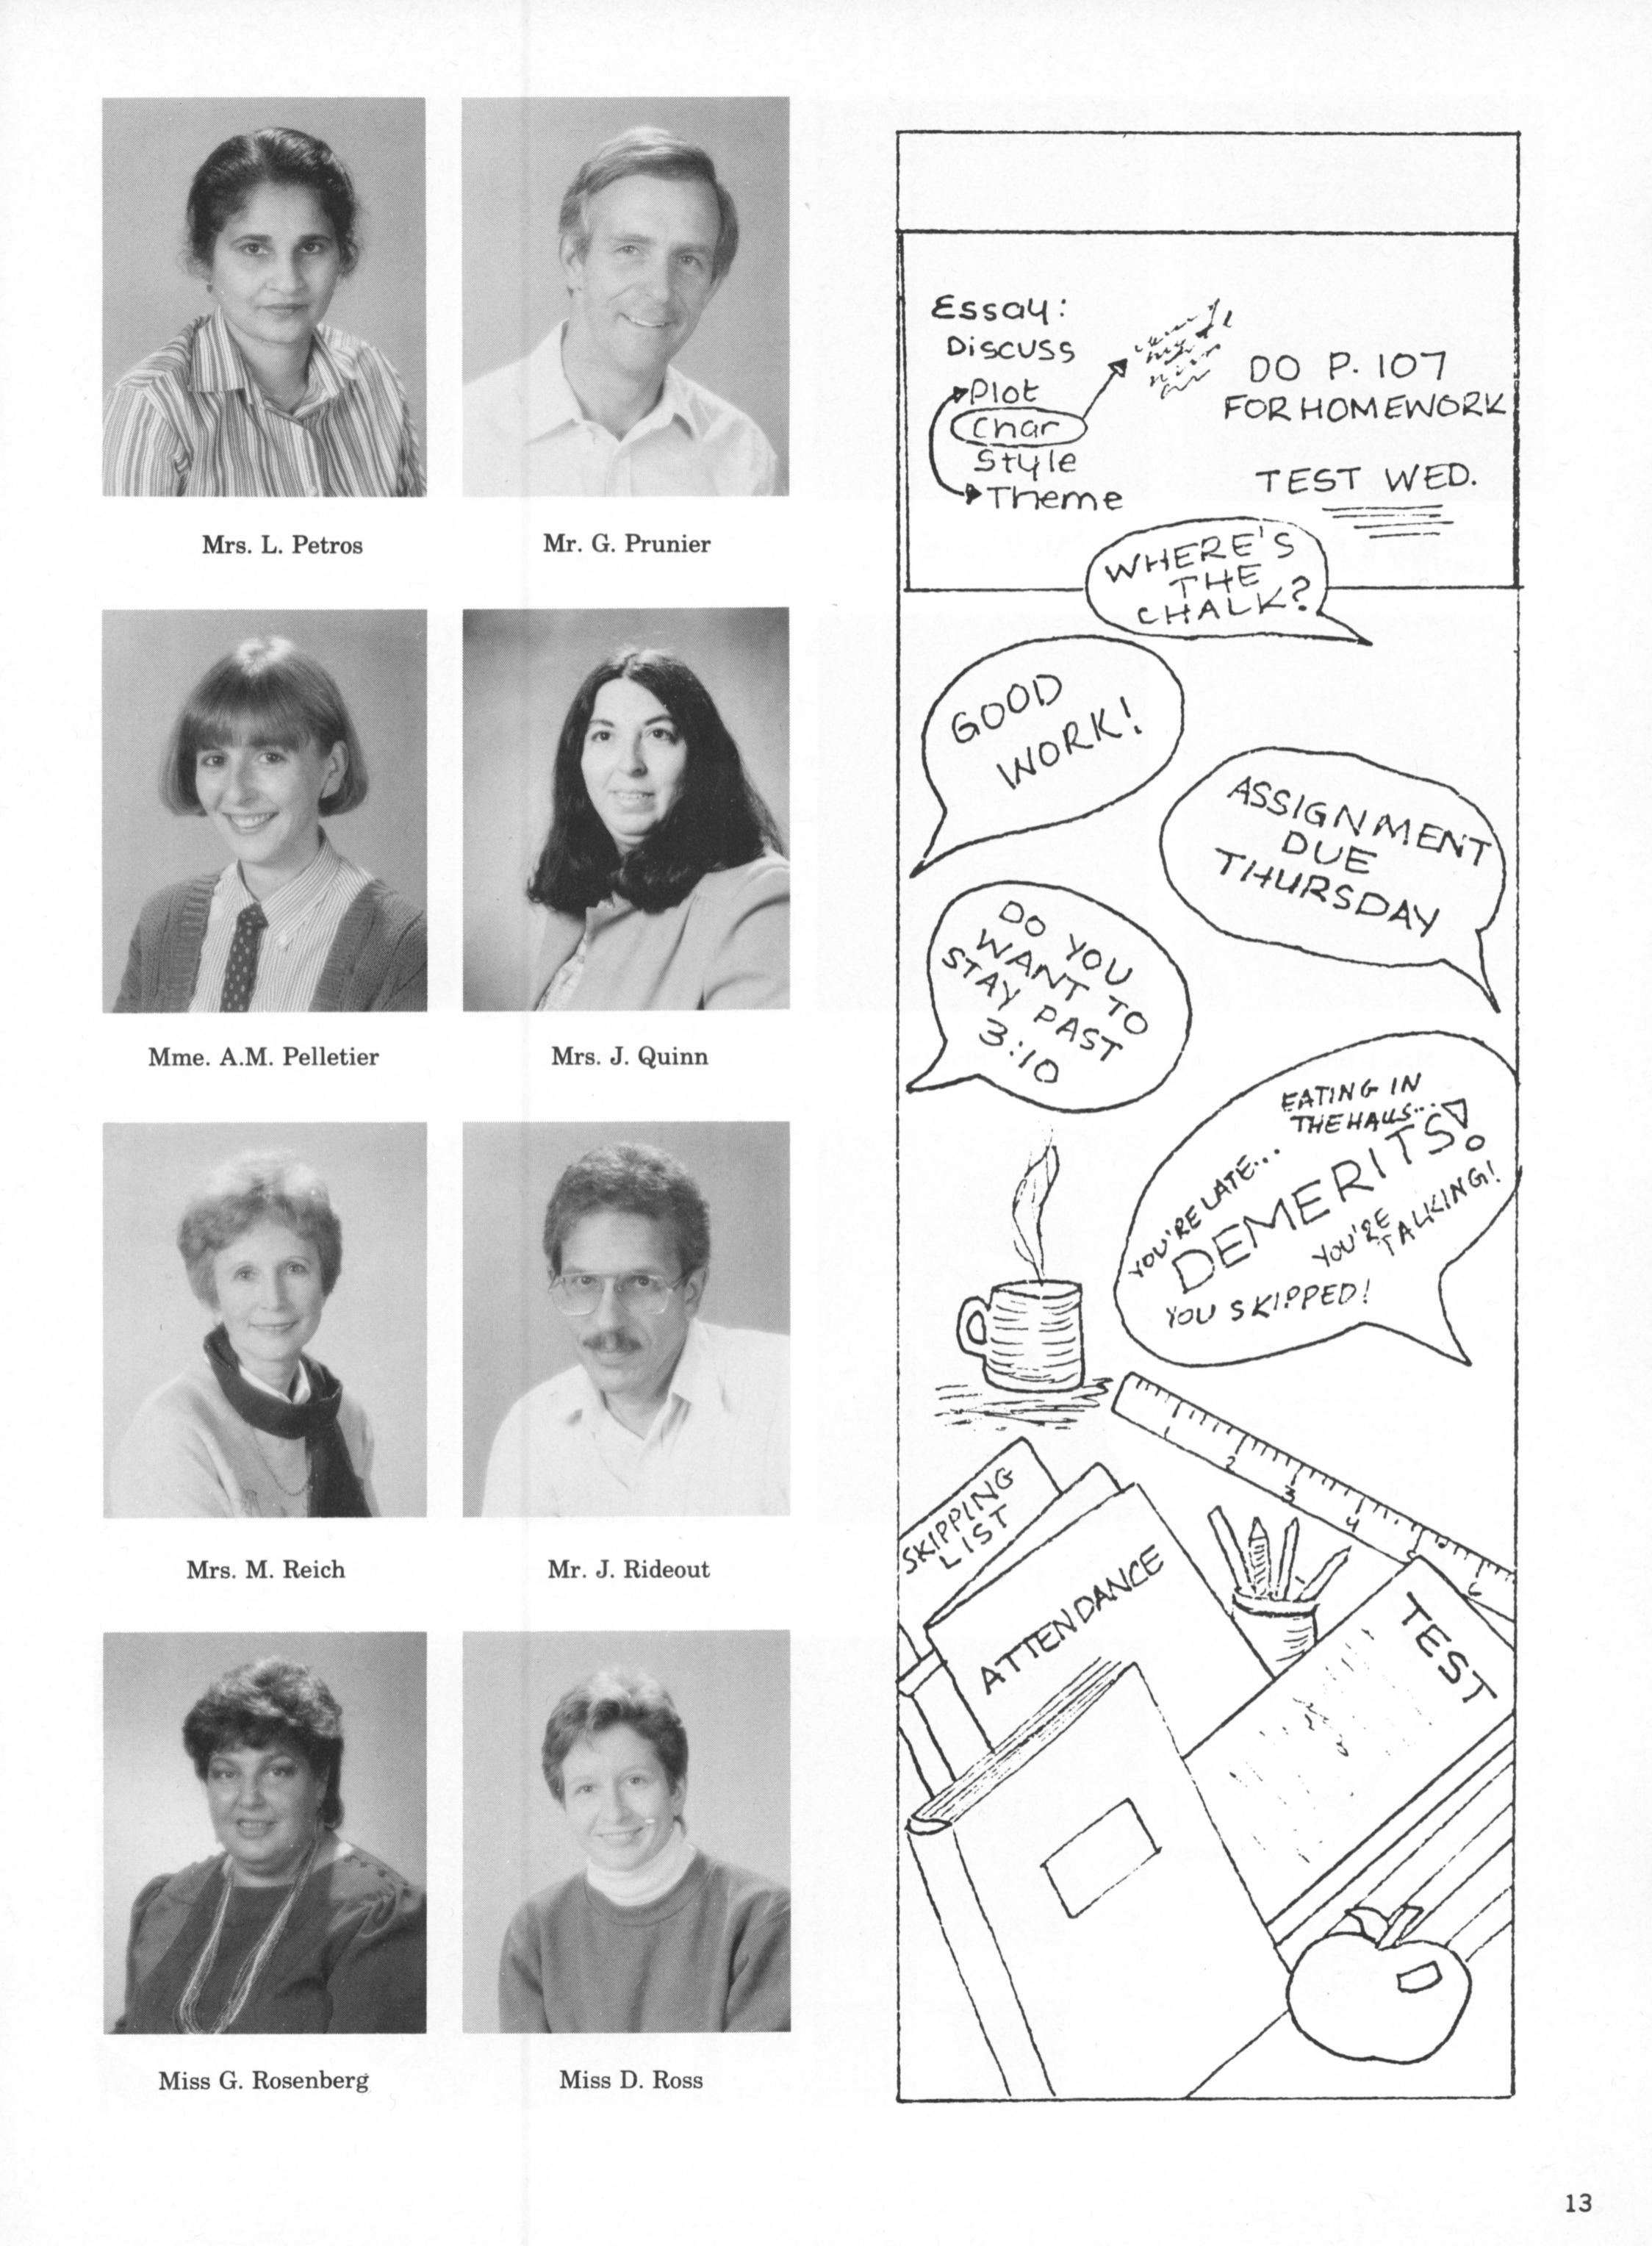 Mrs. L. Petros
Mr. G. Prunier
Mme. A.M. Pelletier
Mrs. J. Quinn
Mrs. M. Reich
Mr. J. Rideout
Miss G. Rosenberg
Miss D. Ross
Essay:
Discuss
Plot
Char
Style
Theme
DO P. 107
FOR HOMEWORK
TEST WED.
WHERE'S
THE
CHALK?
GOOD
WORK!
ASSIGNMENT
DUE
THURSDAY
DO YOU
WANT TO
STAY PAST
3:10
EATING IN
THE HALLS...
YOU'RE LATE...
DEMERITS!
YOU'RE
TALKING!
YOU SKIPPED!
1
2
3
4
5
6
SKIPPING
LIST
ATTENDANCE
TEST
13